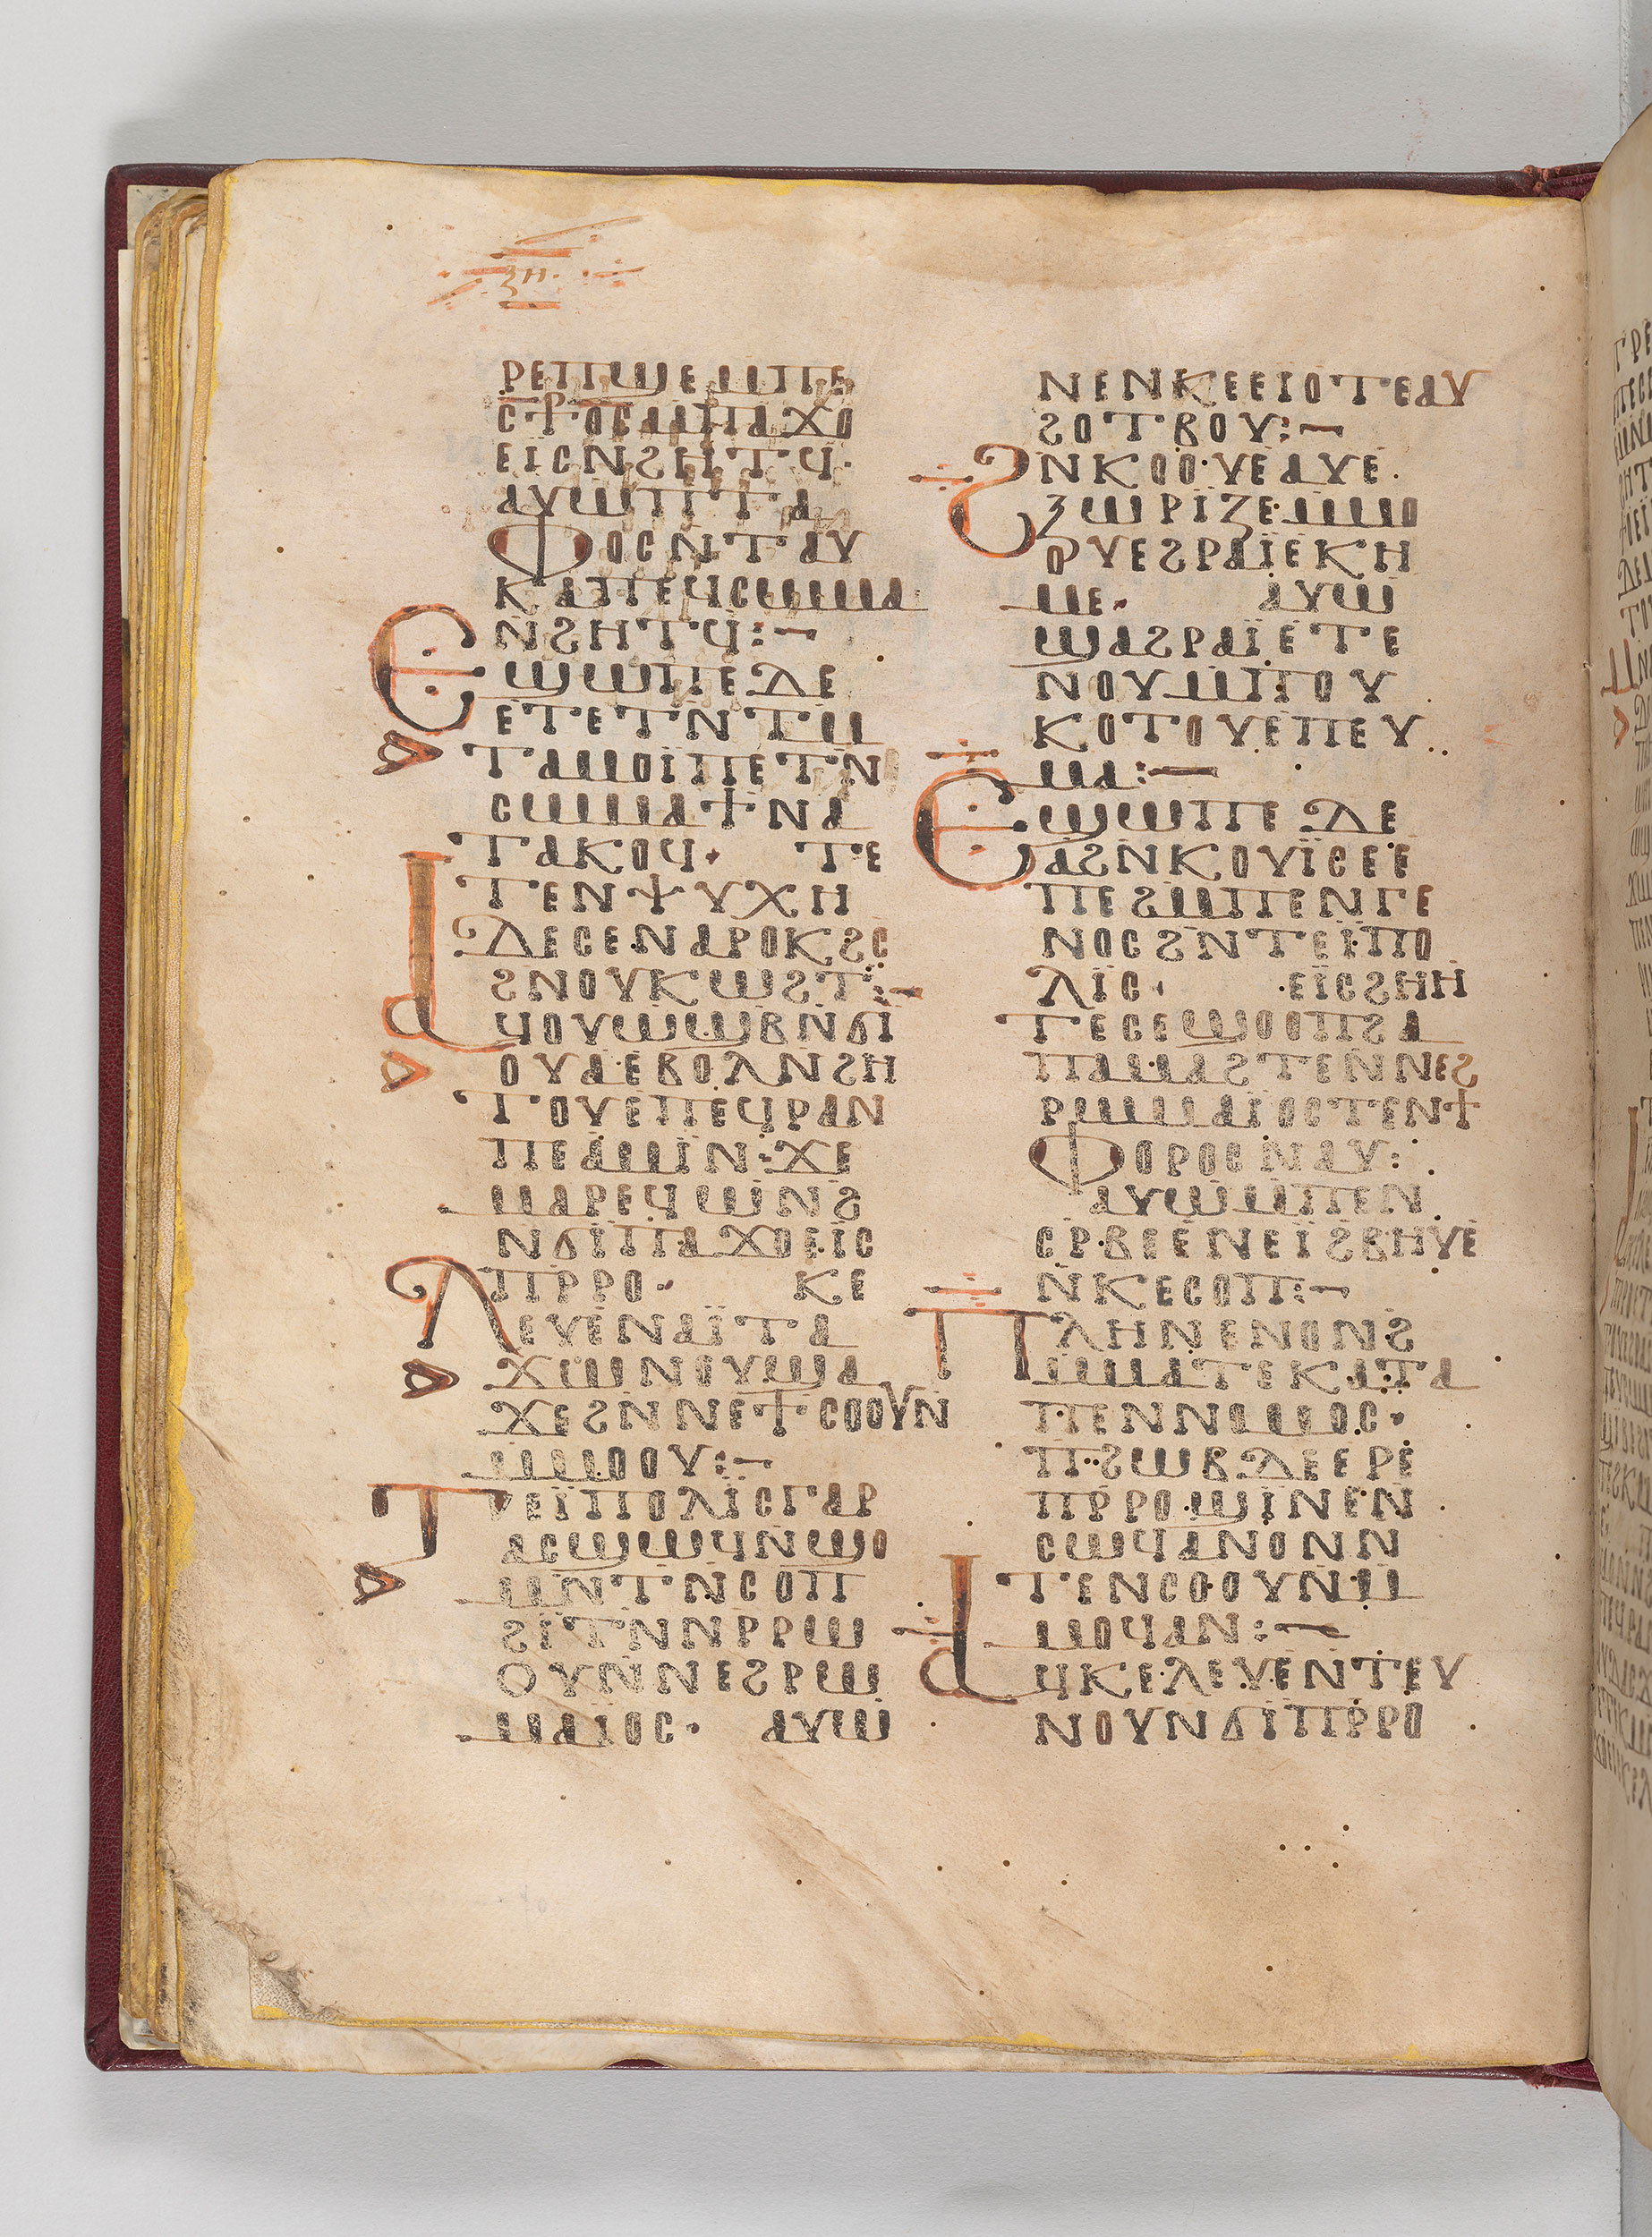 ⲝⲏ
ⲣⲉⲡϣⲉⲙⲡⲉ
ⲥϯⲟⲥⲙⲡⲁϫⲟ
ⲉⲓⲥⲛϩⲏⲧϥ·
ⲁⲩⲱⲡⲧⲁ
ⲫⲟⲥⲛⲧⲁⲩ
ⲕⲁⲡⲉϥⲥⲱⲙⲁ
ⲛϩⲏⲧϥ:—
ⲉϣⲱⲡⲉⲇⲉ
ⲉⲧⲉⲧⲛⲧⲙ
ⲧⲁⲙⲟⲓⲡⲉⲧⲛ
ⲥⲱⲙⲁϯⲛⲁ
ⲧⲁⲕⲟϥ· ⲧⲉ
ⲧⲉⲛⲯⲩⲭⲏ
ⲇⲉⲥⲉⲛⲁⲣⲟⲕϩⲥ
ϩⲛⲟⲩⲕⲱϩⲧ:—
ⲁϥⲟⲩⲱϣⲃⲛϭⲓ
ⲟⲩⲁⲉⲃⲟⲗⲛϩⲏ
ⲧⲟⲩⲉⲡⲉϥⲣⲁⲛ
ⲡⲉⲁⲙⲓⲛ·ϫⲉ
ⲙⲁⲣⲉϥⲱⲛϩ
ⲛϭⲓⲡⲁϫⲟⲉⲓⲥ
ⲡⲣⲣⲟ· ⲕⲉ
ⲗⲉⲩⲉⲛⲁⲓⲧⲁ
ϫⲱⲛⲟⲩϣⲁ
ϫⲉϩⲛⲛⲉϯⲥⲟⲟⲩⲛ
ⲙⲙⲟⲟⲩ:—
ⲧⲉⲓⲡⲟⲗⲓⲥⲅⲁⲣ
ⲁⲥϣⲱϥⲛϣⲟ
ⲙⲛⲧⲛⲥⲟⲡ
ϩⲓⲧⲛⲛⲣⲣⲱ
ⲟⲩⲛⲛⲉϩⲣⲱ
ⲙⲁⲓⲟⲥ· ⲁⲩⲱ
ⲛⲉⲛⲕⲉⲉⲓⲟⲧⲉⲁⲩ
ϩⲟⲧⲃⲟⲩ:—
ϩⲛⲕⲟⲟⲩⲉⲁⲩⲉ
ⲝⲱⲣⲓⲍⲉⲙⲙⲟ
ⲟⲩⲉϩⲣⲁⲓⲉⲕⲏ
ⲙⲉ· ⲁⲩⲱ
ϣⲁϩⲣⲁⲓⲉⲧⲉ
ⲛⲟⲩⲙⲡⲟⲩ
ⲕⲟⲧⲟⲩⲉⲡⲉⲩ
ⲙⲁ:—
ⲉϣⲱⲡⲉⲇⲉ
ⲁϩⲛⲕⲟⲩⲓⲥⲉⲉ
ⲡⲉϩⲙⲡⲉⲛⲅⲉ
ⲛⲟⲥϩⲛⲧⲉⲓⲡⲟ
ⲗⲓⲥ· ·ⲉⲓⲥϩⲏⲏ
ⲧⲉⲥⲉϣⲟⲟⲡϩⲁ
ⲡⲁⲙⲁϩⲧⲉⲛⲛⲉϩ
ⲣⲱⲙⲁⲓⲟⲥⲧⲉⲛϯ
ⲫⲟⲣⲟⲥⲛⲁⲩ:
ⲁⲩⲱⲙⲡⲉⲛ
ⲥⲣⲃⲉⲉⲛⲉⲓϩⲃⲏⲩⲉ
ⲛⲕⲉⲥⲟⲡ:—
ⲡⲗⲏⲛⲉⲛⲟⲛϩ
ⲙⲙⲁⲧⲉⲕⲁⲧⲁ
ⲡⲉⲛⲛⲟⲙⲟⲥ·
ⲡϩⲱⲃⲇⲉⲉⲣⲉ
ⲡⲣⲣⲟϣⲓⲛⲉⲛ
ⲥⲱϥⲁⲛⲟⲛⲛ
ⲧⲉⲛⲥⲟⲟⲩⲛⲙ
ⲙⲟϥⲁⲛ:—
ⲁϥⲕⲉⲗⲉⲩⲉⲛⲧⲉⲩ
ⲛⲟⲩⲛϭⲓⲡⲣⲣⲟ